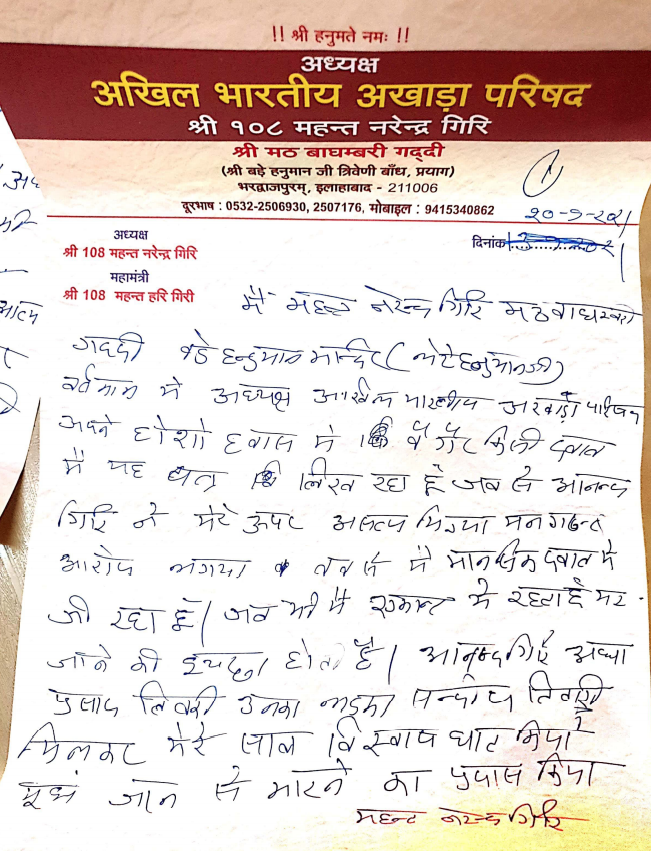 !! श्री हनुमते नमः !!
अध्यक्ष
अखिल भारतीय अखाड़ा परिषद
श्री १०८ महन्त नरेन्द्र गिरि
श्री मठ बाघम्बरी गद्दी
(श्री बड़े हनुमान जी त्रिवेणी बाँध, प्रयाग)
भरद्वाजपुरम्, इलाहाबाद - 211006
दूरभाष : 0532-2506930, 2507176, मोबाइल : 9415340862
1
अध्यक्ष
श्री 108 महन्त नरेन्द्र गिरि
महामंत्री
श्री 108 महन्त हरि गिरी
दिनांक
मैं महन्त नरेन्द्र गिरि मठ बाघम्बरी
गद्दी बडे हनुमान मन्दिर (लेटे हनुमानजी)
वर्तमान मे अध्यक्ष अखिल भारतीय अखाड़ा परिषद
अपने होशो हवास मे बगैर किसी दबाव
मै यह पत्र लिख रहा हूँ जब से आनन्द
गिरि ने मेरे ऊपर असत्य मिथ्या मनगढन्त
आरोप लगाया तब से मै मानसिक दबाव मे
जी रहा हूँ। जब भी मै एकान्त मे रहता हूँ मर
जाने की इच्छा होती है। आनन्द गिरि अद्या
प्रसाद तिवारी उनका लड़का सन्दीप तिवारी
मिलकर मेरे साथ विश्वासघात किया
मुझे जान से मारने का प्रयास किया
महन्त नरेन्द्र गिरि